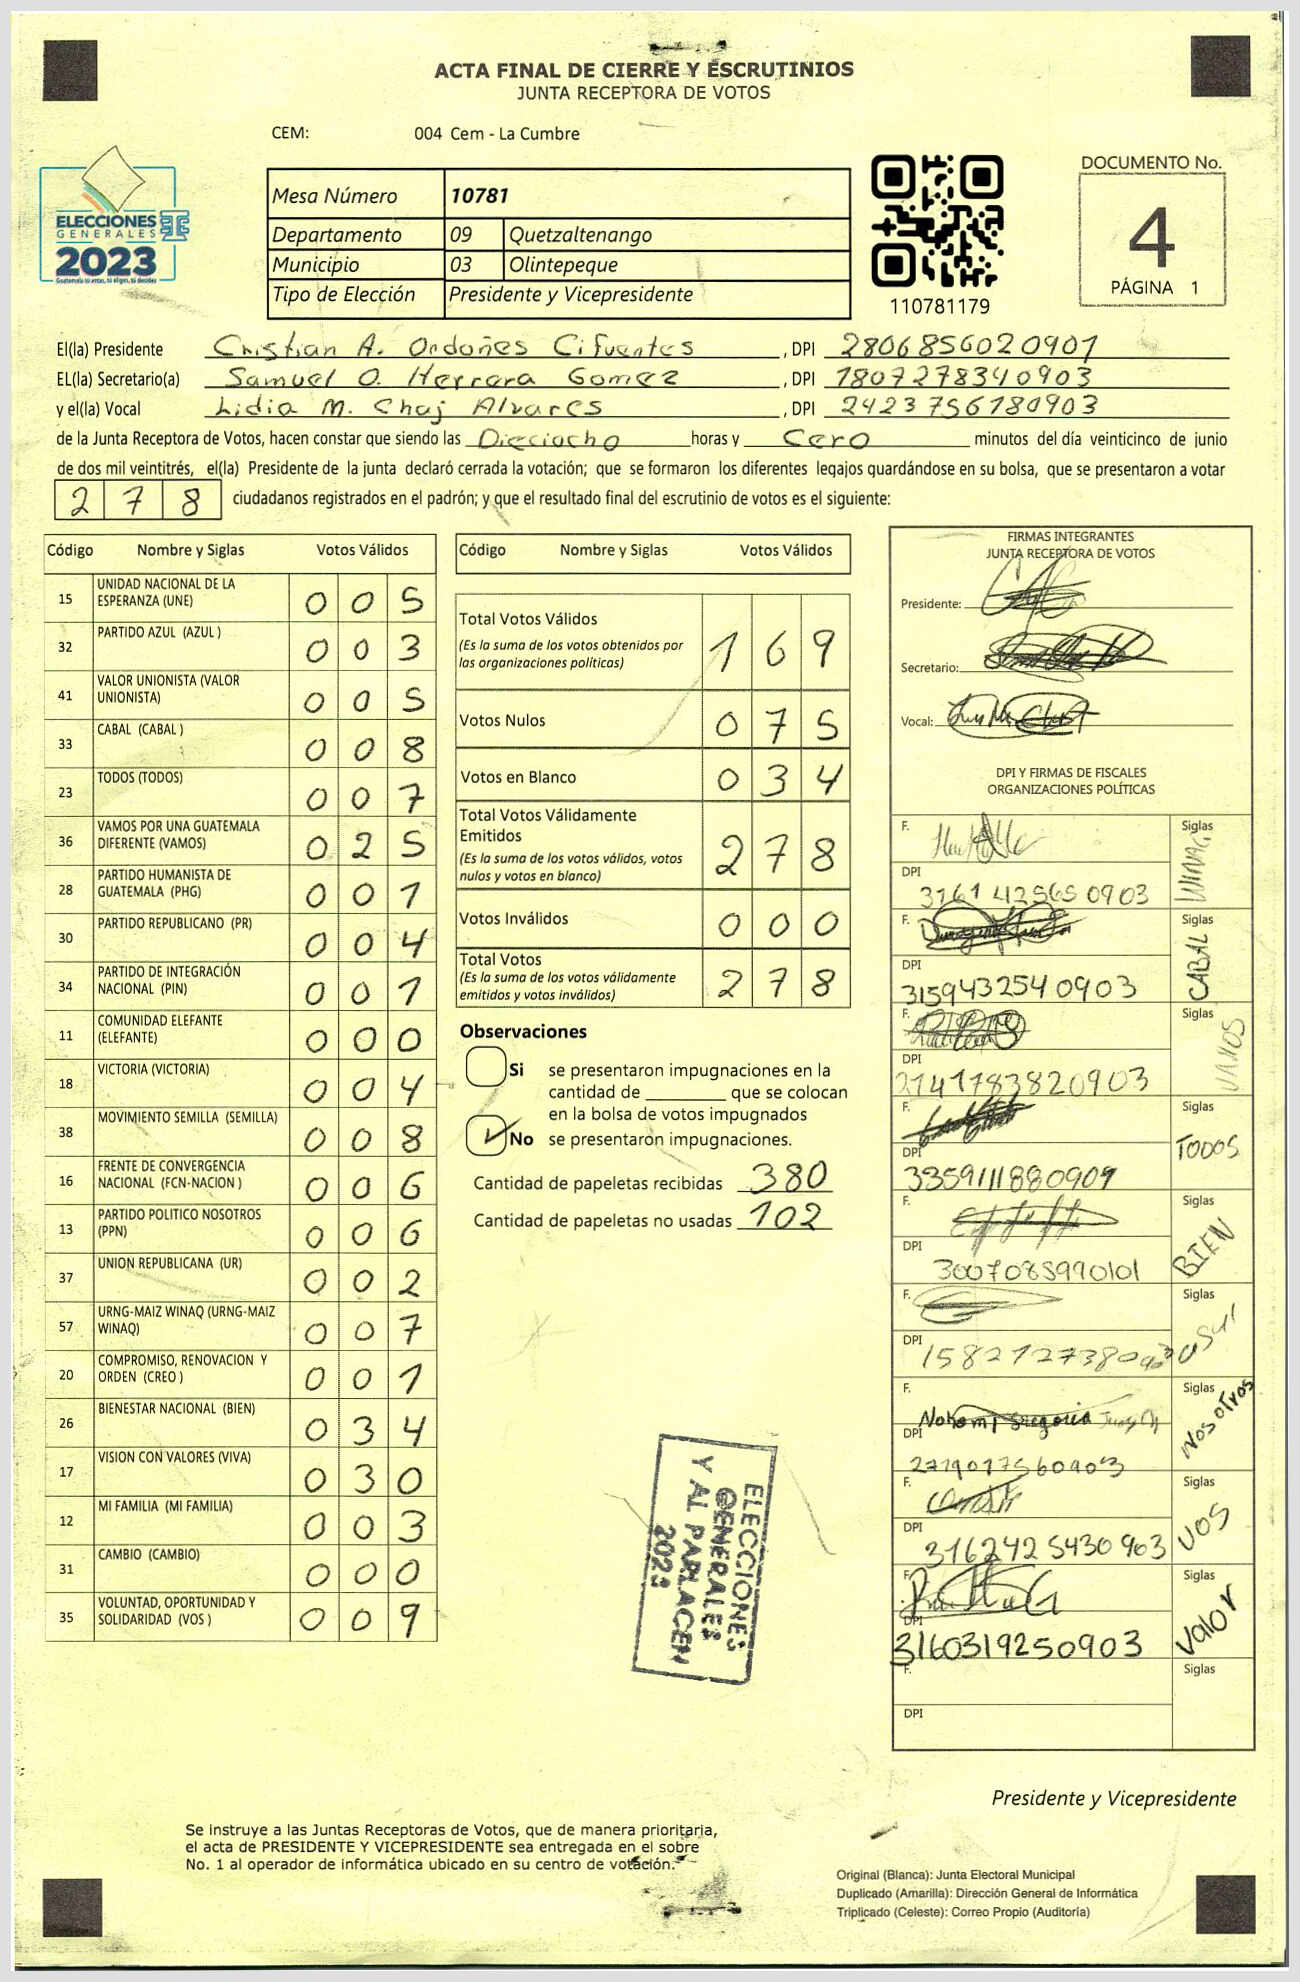 ACTA FINAL DE CIERRE Y ESCRUTINIOS
JUNTA RECEPTORA DE VOTOS
CEM: 004 Cem - La Cumbre
ELECCIONES
GENERALES
2023
Mesa Número 10781
Departamento 09 Quetzaltenango
Municipio 03 Olintepeque
Tipo de Elección Presidente y Vicepresidente
110781179
DOCUMENTO No.
4
PÁGINA 1
El(la) Presidente Cristian A. Ordoñes Cifuentes , DPI 2806856020901
EL(la) Secretario(a) Samuel O. Herrera Gomez , DPI 1807278340903
y el(la) Vocal Lidia M. Chaj Alvares , DPI 2423756180903
de la Junta Receptora de Votos, hacen constar que siendo las Dieciocho horas y Cero minutos del día veinticinco de junio
de dos mil veintitrés, el(la) Presidente de la junta declaró cerrada la votación; que se formaron los diferentes legajos guardándose en su bolsa, que se presentaron a votar
2 7 8 ciudadanos registrados en el padrón; y que el resultado final del escrutinio de votos es el siguiente:
Código Nombre y Siglas Votos Válidos
15 UNIDAD NACIONAL DE LA
ESPERANZA (UNE) 0 0 5
32 PARTIDO AZUL (AZUL ) 0 0 3
41 VALOR UNIONISTA (VALOR
UNIONISTA) 0 0 5
33 CABAL (CABAL ) 0 0 8
23 TODOS (TODOS) 0 0 7
36 VAMOS POR UNA GUATEMALA
DIFERENTE (VAMOS) 0 2 5
28 PARTIDO HUMANISTA DE
GUATEMALA (PHG) 0 0 1
30 PARTIDO REPUBLICANO (PR) 0 0 4
34 PARTIDO DE INTEGRACIÓN
NACIONAL (PIN) 0 0 1
11 COMUNIDAD ELEFANTE
(ELEFANTE) 0 0 0
18 VICTORIA (VICTORIA) 0 0 4
38 MOVIMIENTO SEMILLA (SEMILLA) 0 0 8
16 FRENTE DE CONVERGENCIA
NACIONAL (FCN-NACION ) 0 0 6
13 PARTIDO POLITICO NOSOTROS
(PPN) 0 0 6
37 UNION REPUBLICANA (UR) 0 0 2
57 URNG-MAIZ WINAQ (URNG-MAIZ
WINAQ) 0 0 7
20 COMPROMISO, RENOVACION Y
ORDEN (CREO ) 0 0 1
26 BIENESTAR NACIONAL (BIEN) 0 3 4
17 VISION CON VALORES (VIVA) 0 3 0
12 MI FAMILIA (MI FAMILIA) 0 0 3
31 CAMBIO (CAMBIO) 0 0 0
35 VOLUNTAD, OPORTUNIDAD Y
SOLIDARIDAD (VOS ) 0 0 9
Código Nombre y Siglas Votos Válidos
Total Votos Válidos
(Es la suma de los votos obtenidos por
las organizaciones políticas) 1 6 9
Votos Nulos 0 7 5
Votos en Blanco 0 3 4
Total Votos Válidamente
Emitidos
(Es la suma de los votos válidos, votos
nulos y votos en blanco) 2 7 8
Votos Inválidos 0 0 0
Total Votos
(Es la suma de los votos válidamente
emitidos y votos inválidos) 2 7 8
Observaciones
Si se presentaron impugnaciones en la
cantidad de ________ que se colocan
en la bolsa de votos impugnados
No se presentaron impugnaciones.
Cantidad de papeletas recibidas 380
Cantidad de papeletas no usadas 102
ELECCIONES
GENERALES
Y AL PARLACEN
2023
FIRMAS INTEGRANTES
JUNTA RECEPTORA DE VOTOS
Presidente:
Secretario:
Vocal:
DPI Y FIRMAS DE FISCALES
ORGANIZACIONES POLÍTICAS
F. Siglas WINAQ
DPI 3161 42565 0903
F. Siglas CABAL
DPI 3159432540903
F. Siglas VAMOS
DPI 2141783820903
F. Siglas TODOS
DPI 3359111880901
F. Siglas BIEN
DPI 3007085990101
F. Siglas
DPI
F. Nohemi Gregoria Siglas Nosotros
DPI 2719017560903
F. Siglas VOS
DPI 3162425430903
F. Siglas Valor
DPI 3160319250903
F. Siglas
DPI
Presidente y Vicepresidente
Se instruye a las Juntas Receptoras de Votos, que de manera prioritaria,
el acta de PRESIDENTE Y VICEPRESIDENTE sea entregada en el sobre
No. 1 al operador de informática ubicado en su centro de votación.
Original (Blanca): Junta Electoral Municipal
Duplicado (Amarilla): Dirección General de Informática
Triplicado (Celeste): Correo Propio (Auditoría)